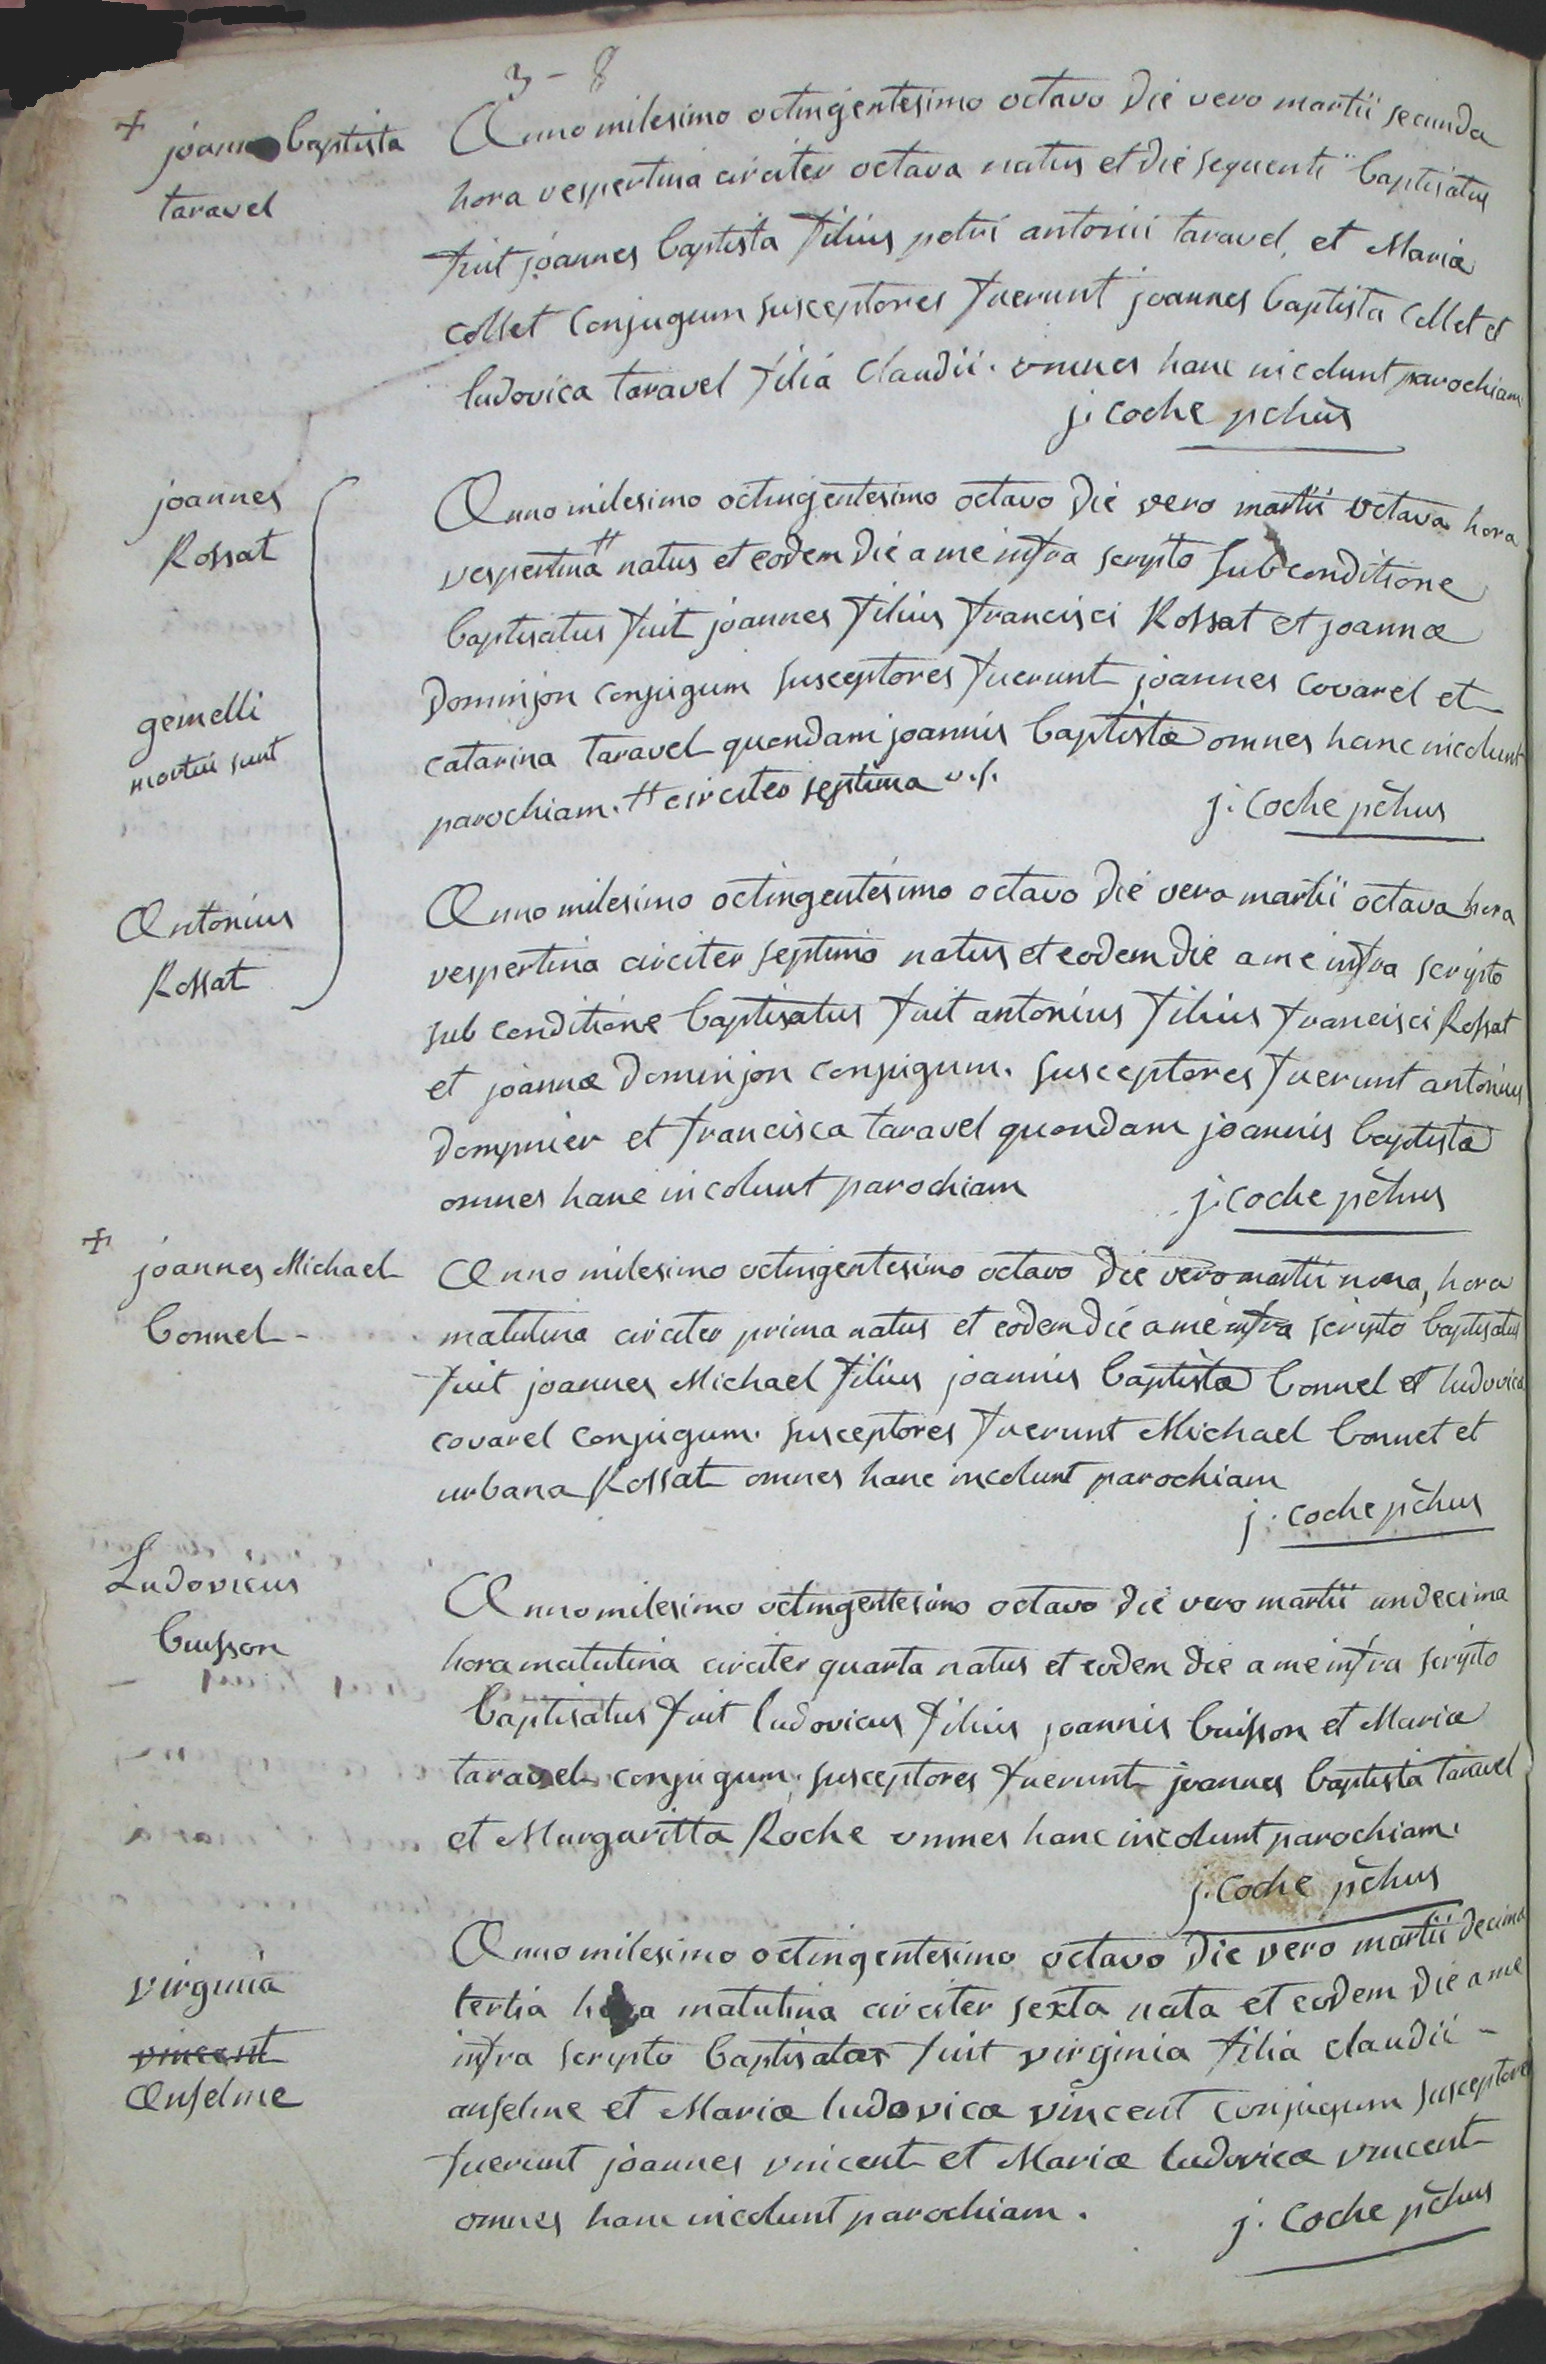 3 - 8
+ joannes baptista
taravel
Anno milesimo octingentesimo octavo die vero martii secunda
hora vespertina circiter octava natus et die sequenti baptisatus
fuit joannes baptista filius petri antonii taravel, et Mariæ
collet conjugum susceptores fuerunt joannes baptista collet et
ludovica taravel filia claudii. omnes hanc incolunt parochiam
j. coche pchus
joannes
Rossat
gemelli
mortui sunt
Anno milesimo octingentesimo octavo die vero martii octava hora
vespertina # natus et eodem die a me infra scripto sub conditione
baptisatus fuit joannes filius francisci Rossat et joannæ
dominjon conjugum susceptores fuerunt joannes covarel et
catarina taravel quondam joannis baptistæ omnes hanc incolunt
parochiam. # circiter septima v.s.
j. coche pchus
Antonius
Rossat
Anno milesimo octingentesimo octavo die vero martii octava hora
vespertina circiter septima natus et eodem die a me infra scripto
sub conditione baptisatus fuit antonius filius francisci Rossat
et joannæ dominjon conjugum. susceptores fuerunt antonius
dompnier et francisca taravel quondam joannis baptistæ
omnes hanc incolunt parochiam
j. coche pchus
+ joannes Michael
bonnel
Anno milesimo octingentesimo octavo die vero martii nona, hora
matutina circiter prima natus et eodem die a me infra scripto baptisatus
fuit joannes Michael filius joannis baptistæ bonnel et ludovicæ
covarel conjugum. susceptores fuerunt Michael bonnet et
urbana Rossat omnes hanc incolunt parochiam
j. coche pchus
Ludovicus
buisson
Anno milesimo octingentesimo octavo die vero martii undecima
hora matutina circiter quarta natus et eodem die a me infra scripto
baptisatus fuit ludovicus filius joannis buisson et Mariæ
taravel conjugum. susceptores fuerunt joannes baptista taravel
et Margaritta Roche omnes hanc incolunt parochiam.
j. coche pchus
virginia
vincent
Anselme
Anno milesimo octingentesimo octavo die vero martii decima
tertia hora matutina circiter sexta nata et eodem die a me
infra scripto baptisata fuit virginia filia claudii -
anselme et Mariæ ludovicæ vincent conjugum susceptores
fuerunt joannes vincent et Mariæ ludovicæ vincent
omnes hanc incolunt parochiam.
j. coche pchus